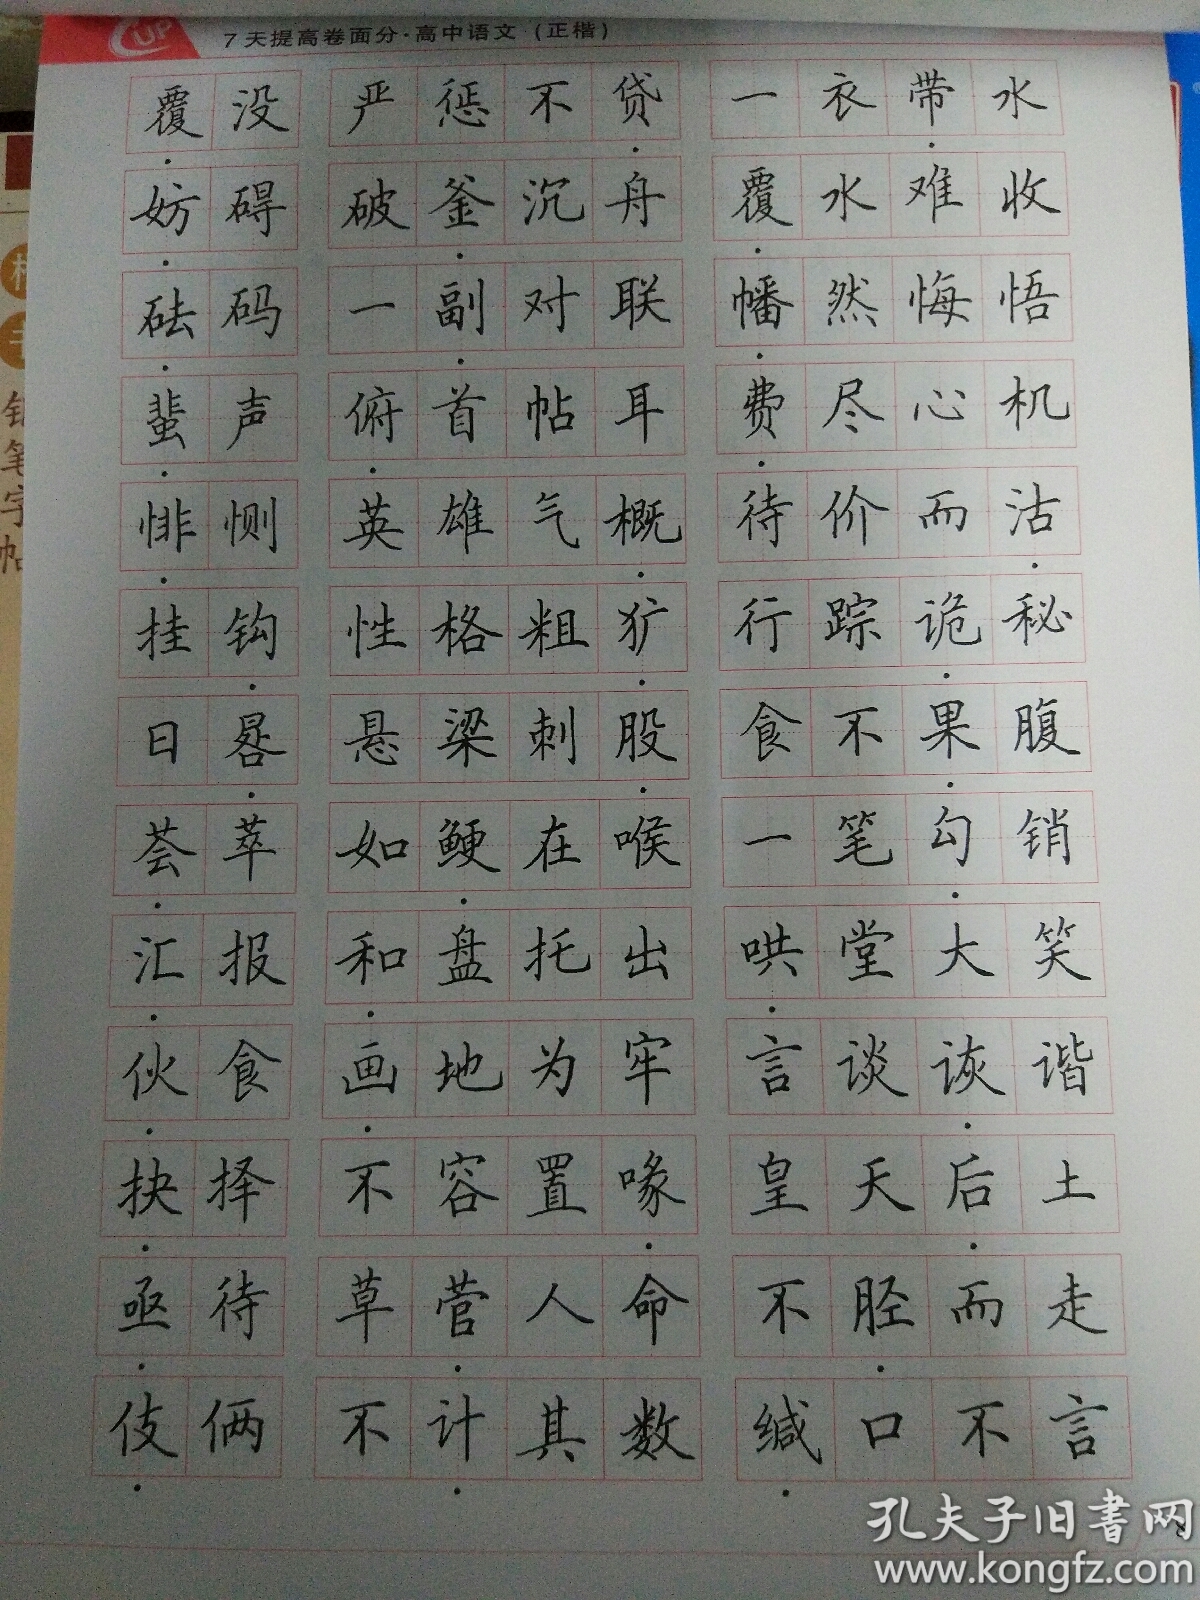 CUP 7天提高卷面分·高中语文（正楷）
覆没 严惩不贷 一衣带水
妨碍 破釜沉舟 覆水难收
砝码 一副对联 幡然悔悟
蜚声 俯首帖耳 费尽心机
悱恻 英雄气概 待价而沽
挂钩 性格粗犷 行踪诡秘
日晷 悬梁刺股 食不果腹
荟萃 如鲠在喉 一笔勾销
汇报 和盘托出 哄堂大笑
伙食 画地为牢 言谈诙谐
抉择 不容置喙 皇天后土
亟待 草菅人命 不胫而走
伎俩 不计其数 缄口不言
钢笔字帖
孔夫子旧书网
www.kongfz.com